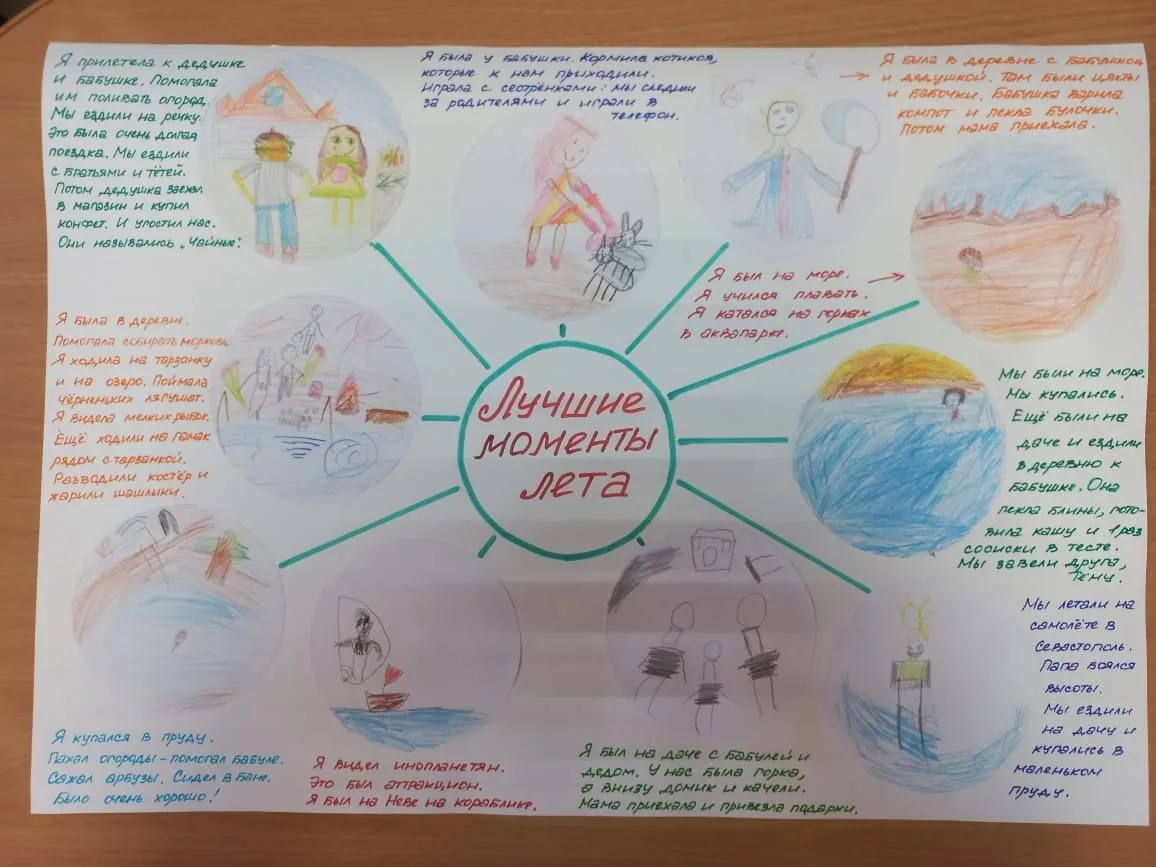 Я прилетела к дедушке
и бабушке. Помогала
им поливать огород.
Мы ездили на речку.
Это была очень долгая
поездка. Мы ездили
с братьями и тётей.
Потом дедушка заехал
в магазин и купил
конфет. И угостил нас.
Они назывались „Чайные".
Я была у бабушки. Кормила котиков,
которые к нам приходили.
Играла с сестрёнками: мы следили
за родителями и играли в
телефон.
Я была в деревне с бабушкой
и дедушкой. Там были цветы
и бабочки. Бабушка варила
компот и пекла булочки.
Потом мама приехала.
Я был на море.
Я учился плавать.
Я катался на горках
в аквапарке.
Я была в деревне.
Помогала собирать морковь.
Я ходила на тарзанку
и на озеро. Поймала
чёрненьких лягушат.
Я видела мелких рыбок.
Ещё ходили на гамак
рядом с тарзанкой.
Разводили костёр и
жарили шашлыки.
Лучшие
моменты
лета
Мы были на море.
Мы купались.
Ещё были на
даче и ездили
в деревню к
бабушке. Она
пекла блины, гото-
вила кашу и 1 раз
сосиски в тесте.
Мы завели друга,
Тёму.
Я купался в пруду.
Пахал огороды - помогал бабуле.
Сажал арбузы. Сидел в бане.
Было очень хорошо!
Я видел инопланетян.
Это был аттракцион.
Я был на Неве на кораблике.
Я был на даче с бабулей и
дедом. У нас была горка,
а внизу домик и качели.
Мама приехала и привезла подарки.
Мы летали на
самолёте в
Севастополь.
Папа боялся
высоты.
Мы ездили
на дачу и
купались в
маленьком
пруду.